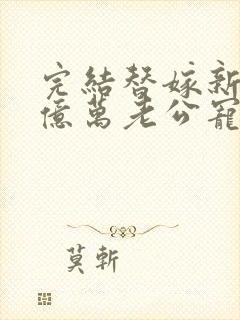 完結替嫁新
億萬老公寵
莫斬